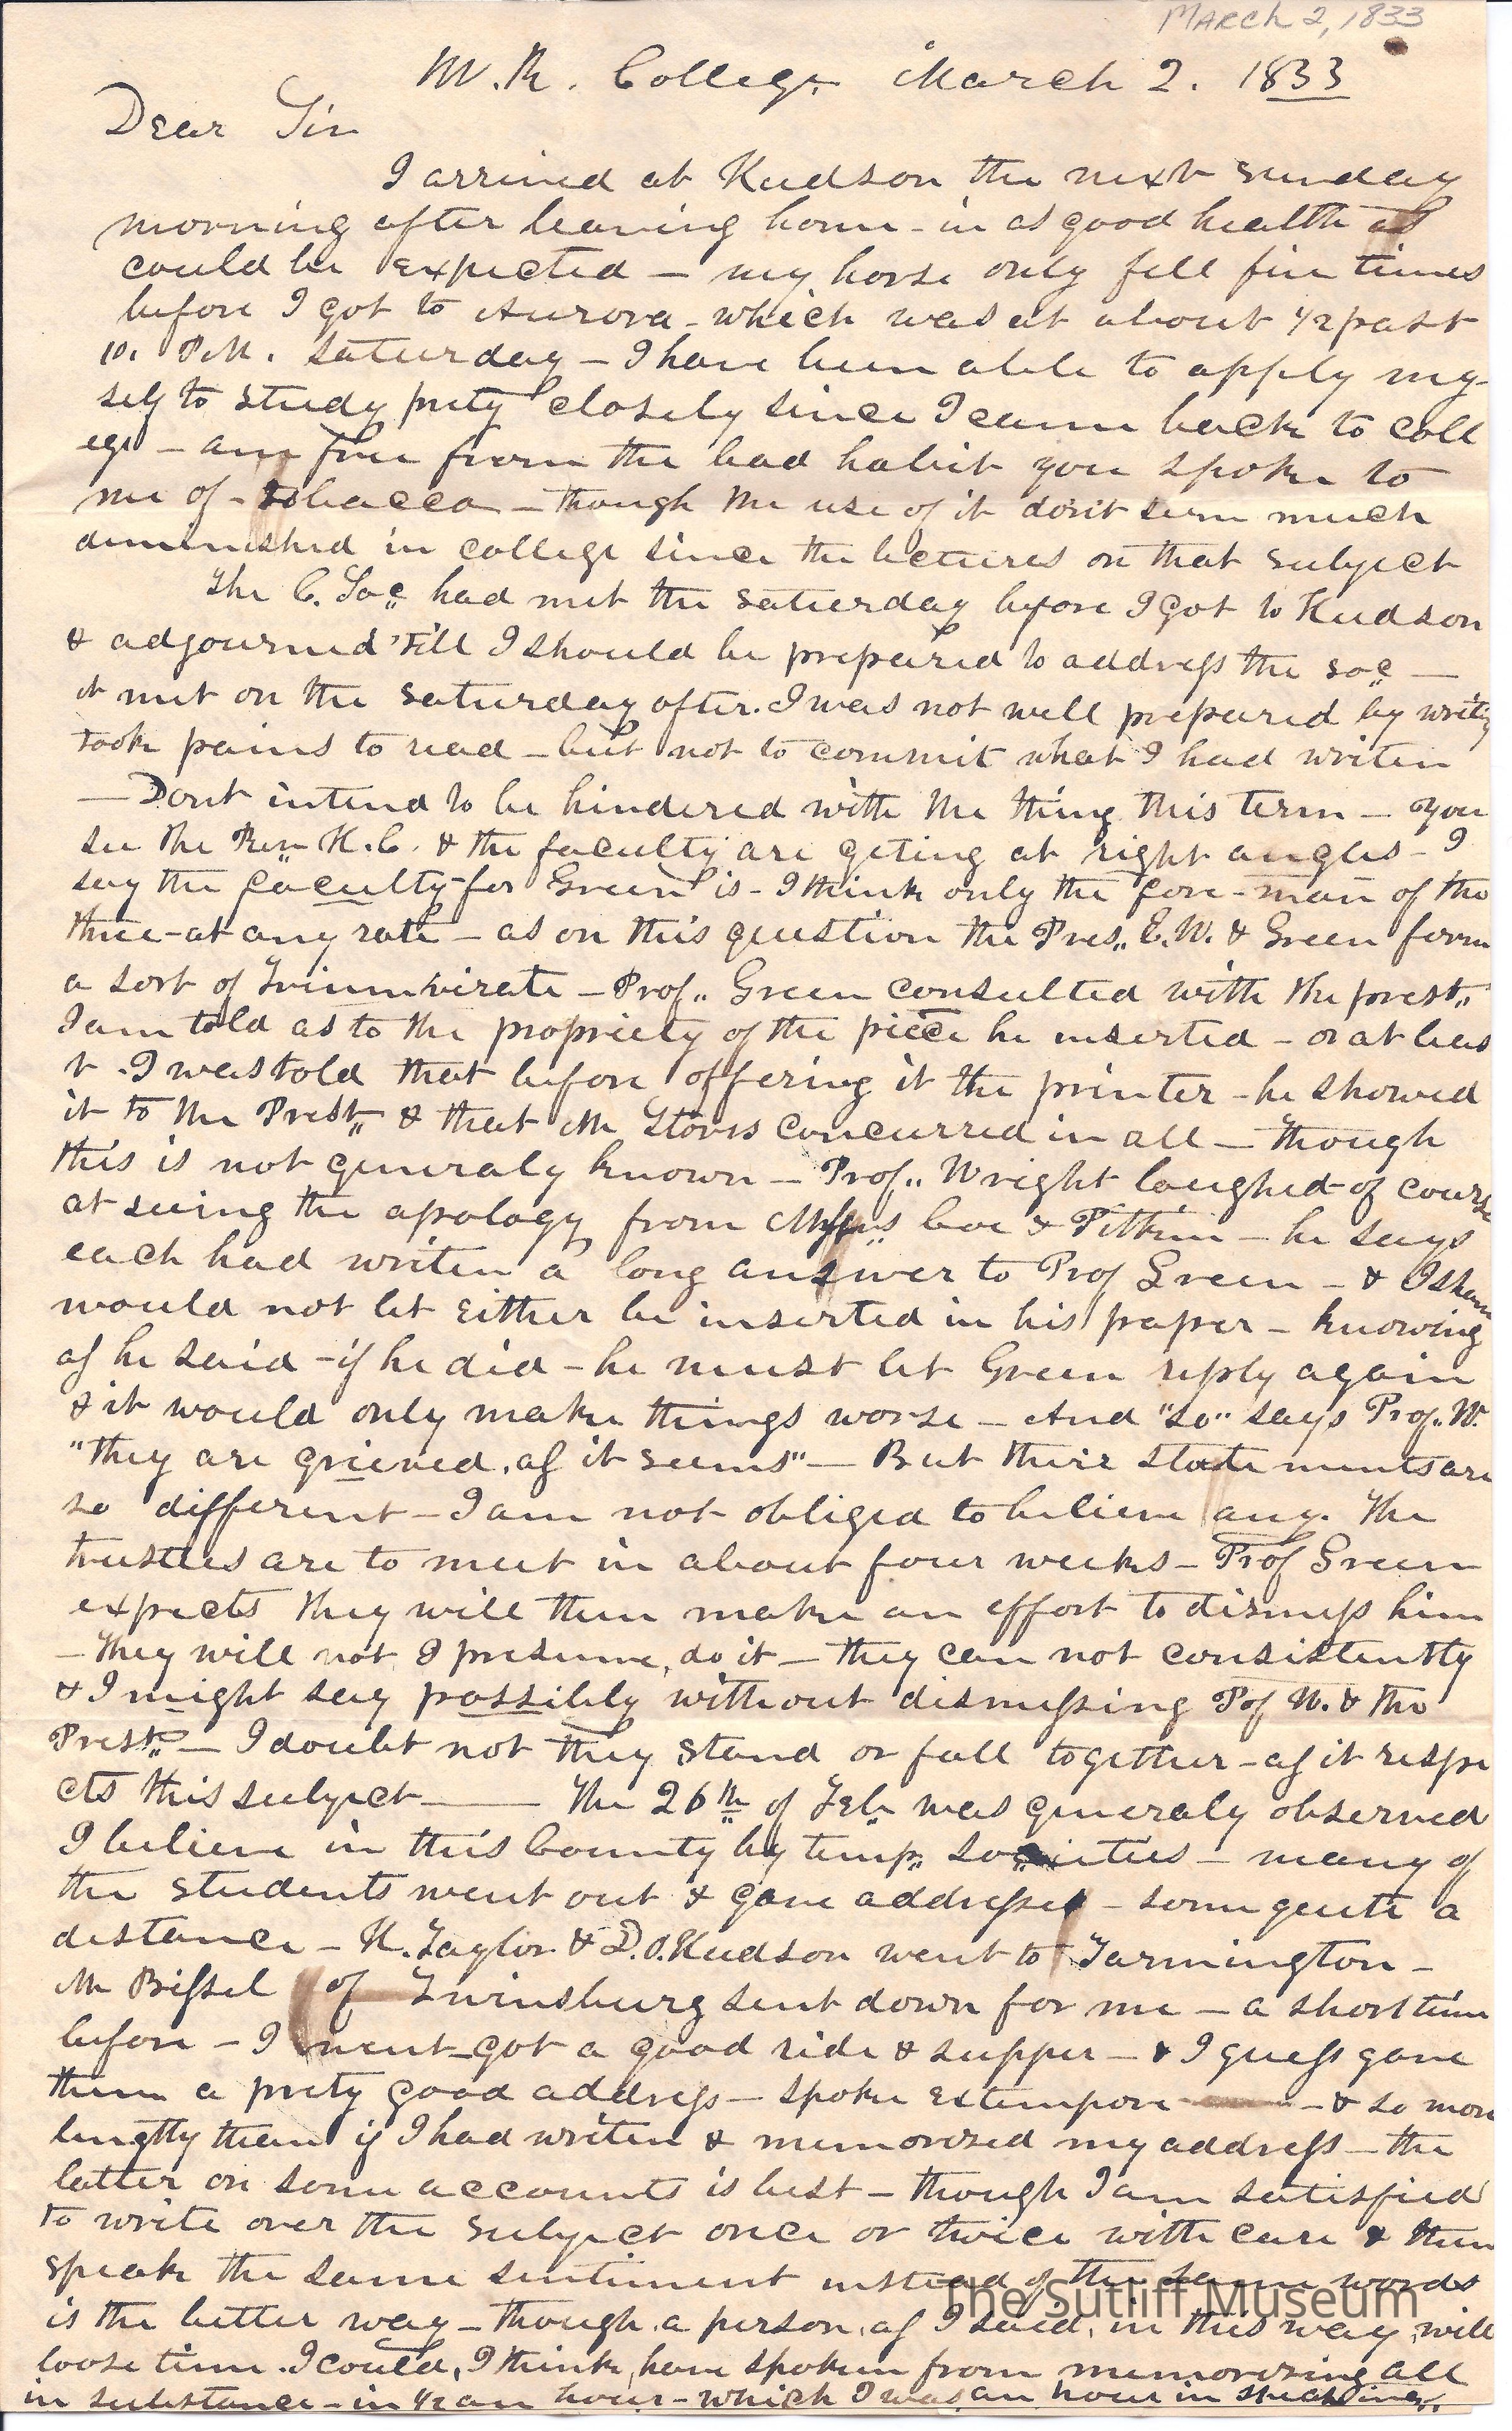 MARCH 2, 1833
W. R. College March 2. 1833
Dear Sir
I arrived at Hudson the next sunday
morning after leaving home - in as good health as
could be expected - my horse only fell five times
before I got to Aurora - which was at about 1/2 past
10. P.M. Saturday - I have been able to apply my-
self to study prety closely since I came back to coll
ege - am free from the bad habit you spoke to
me of - tobacco - though the use of it don't seem much
diminished in college since the lectures on that subject
The C. Soc. had met the saturday before I got to Hudson
& adjourned 'till I should be prepared to address the soc. -
it met on the saturday after. I was not well prepared by writing
took pains to read - but not to commit what I had writen
- Dont intend to be hindered with the thing this term - you
see the Rev. H. C. & the faculty are geting at right angles - I
say the faculty - for Green is - I think only the fore-man of the
three - at any rate - as on this question the Pres,, E. W. & Green form
a sort of Triumvirate - Prof,, Green consulted with the prest,,
I am told as to the propriety of the piece he inserted - or at leas
t - I was told that before offering it the printer - he showed
it to the Prest,, & that Mr Storrs concurred in all - though
this is not generaly known - Prof,, Wright laughed of course
at seing the apology from Messrs,, Coe & Pitkin - he says
each had writen a long answer to Prof Green - & Isham
would not let either be inserted in his paper - knowing
as he said - if he did - he must let Green reply again
& it would only make things worse - And "so" says Prof,, W.
"they are grieved, as it seems" - But their statements are
so different - I am not obliged to believe any. The
trustees are to meet in about four weeks - Prof Green
expects they will then make an effort to dismiss him
- they will not I presume, do it - they can not consistently
& I might say possibly without dismissing Pof W. & the
Prest,, - I doubt not they stand or fall together - as it respe
cts this subject - The 26th of Feb. was generaly observed
I believe in this County by temp,, societies - many of
the students went out & gave addresses - some quite a
distance - H. Taylor & D. O. Hudson went to Farmington -
Mr Bissel of Twinsburg sent down for me - a short time
before - I went - got a good ride & supper - & I guess gave
them a prety good address - spoke extempore - & so more
lengthy than if I had writen & memorized my address - the
latter on some accounts is best - though I am satisfied
to write over the subject once or twice with care & then
speak the same sentiment instead of the same words
is the better way - though, a person, as I said, in this way, will
loose time. I could, I think, have spoken from memorising all
in substance - in 1/2 an hour - which I was an hour in speaking.
The Sutliff Museum